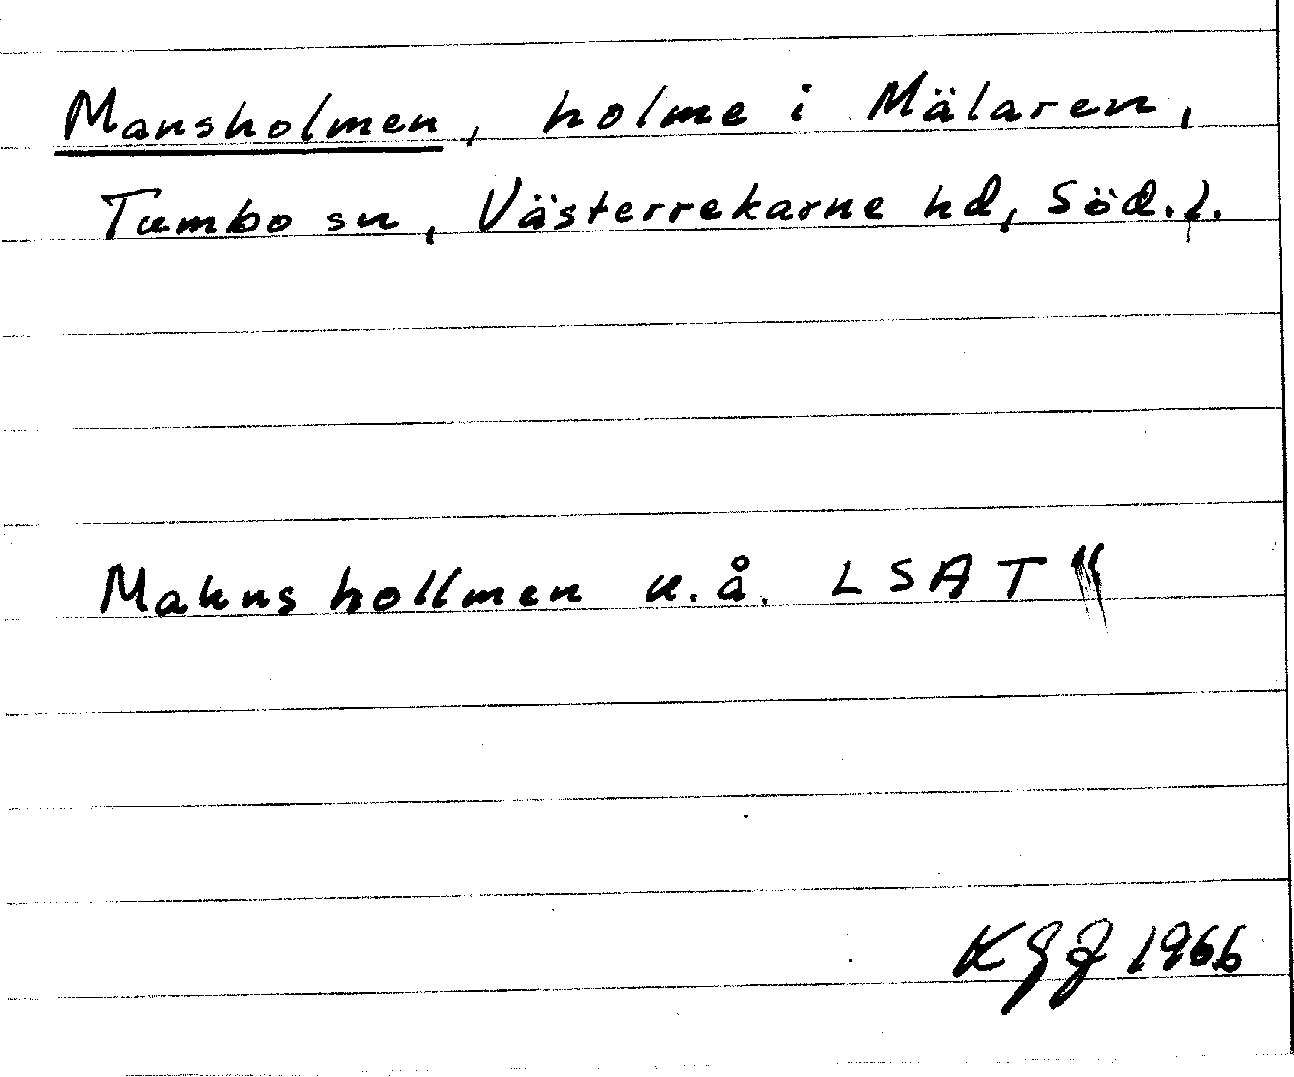 Mansholmen, holme i Mälaren,
Tumbo sn, Västerrekarne hd, Söd.l.
Mahns hollmen u.å. LSAT
KGJ 1966